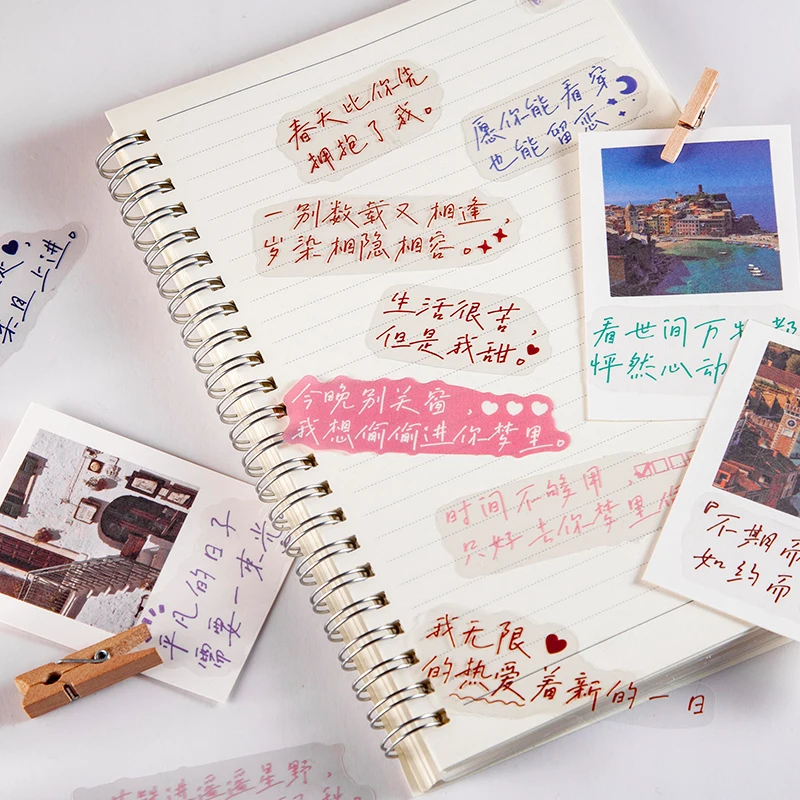 春天比你先
拥抱了我。
愿你能看穿
也能留恋
一别数载又相逢，
岁染相隐相容。
生活很苦，
但是我甜。
今晚别关窗，
我想偷偷进你梦里。
时间不够用，
只好去你梦里
我无限
的热爱着新的一日
看世间万物
怦然心动
『不期而
如约而
平凡的日子
需要一束光
进遥遥星野，